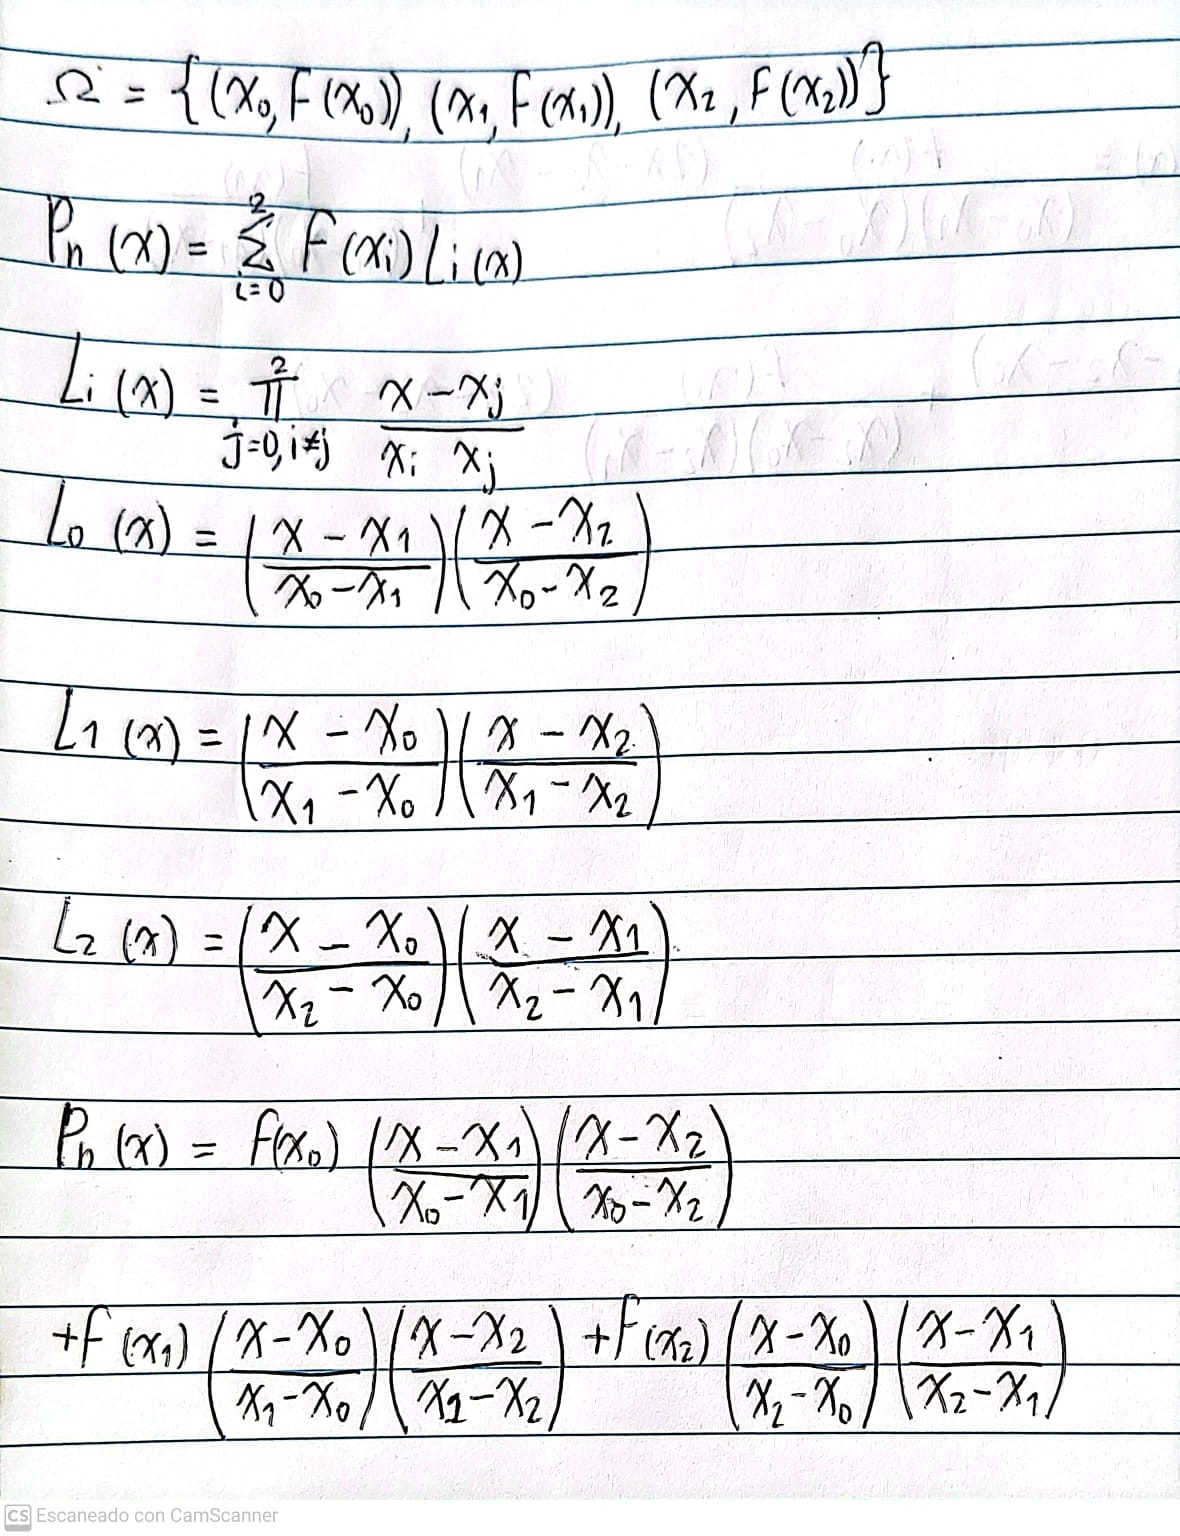 Ω = {(x₀, F(x₀)), (x₁, F(x₁)), (x₂, F(x₂))}
Pn (x) = Σ F(xi) Li(x)
2
i=0
Li (x) = π x-xj
2
j=0, i≠j xi xj
L₀ (x) = (x - x₁ / x₀ - x₁)(x - x₂ / x₀ - x₂)
L₁ (x) = (x - x₀ / x₁ - x₀)(x - x₂ / x₁ - x₂)
L₂ (x) = (x - x₀ / x₂ - x₀)(x - x₁ / x₂ - x₁)
Pn (x) = f(x₀) (x - x₁ / x₀ - x₁)(x - x₂ / x₀ - x₂)
+f(x₁) (x - x₀ / x₁ - x₀)(x - x₂ / x₁ - x₂) +f(x₂) (x - x₀ / x₂ - x₀)(x - x₁ / x₂ - x₁)
CS Escaneado con CamScanner